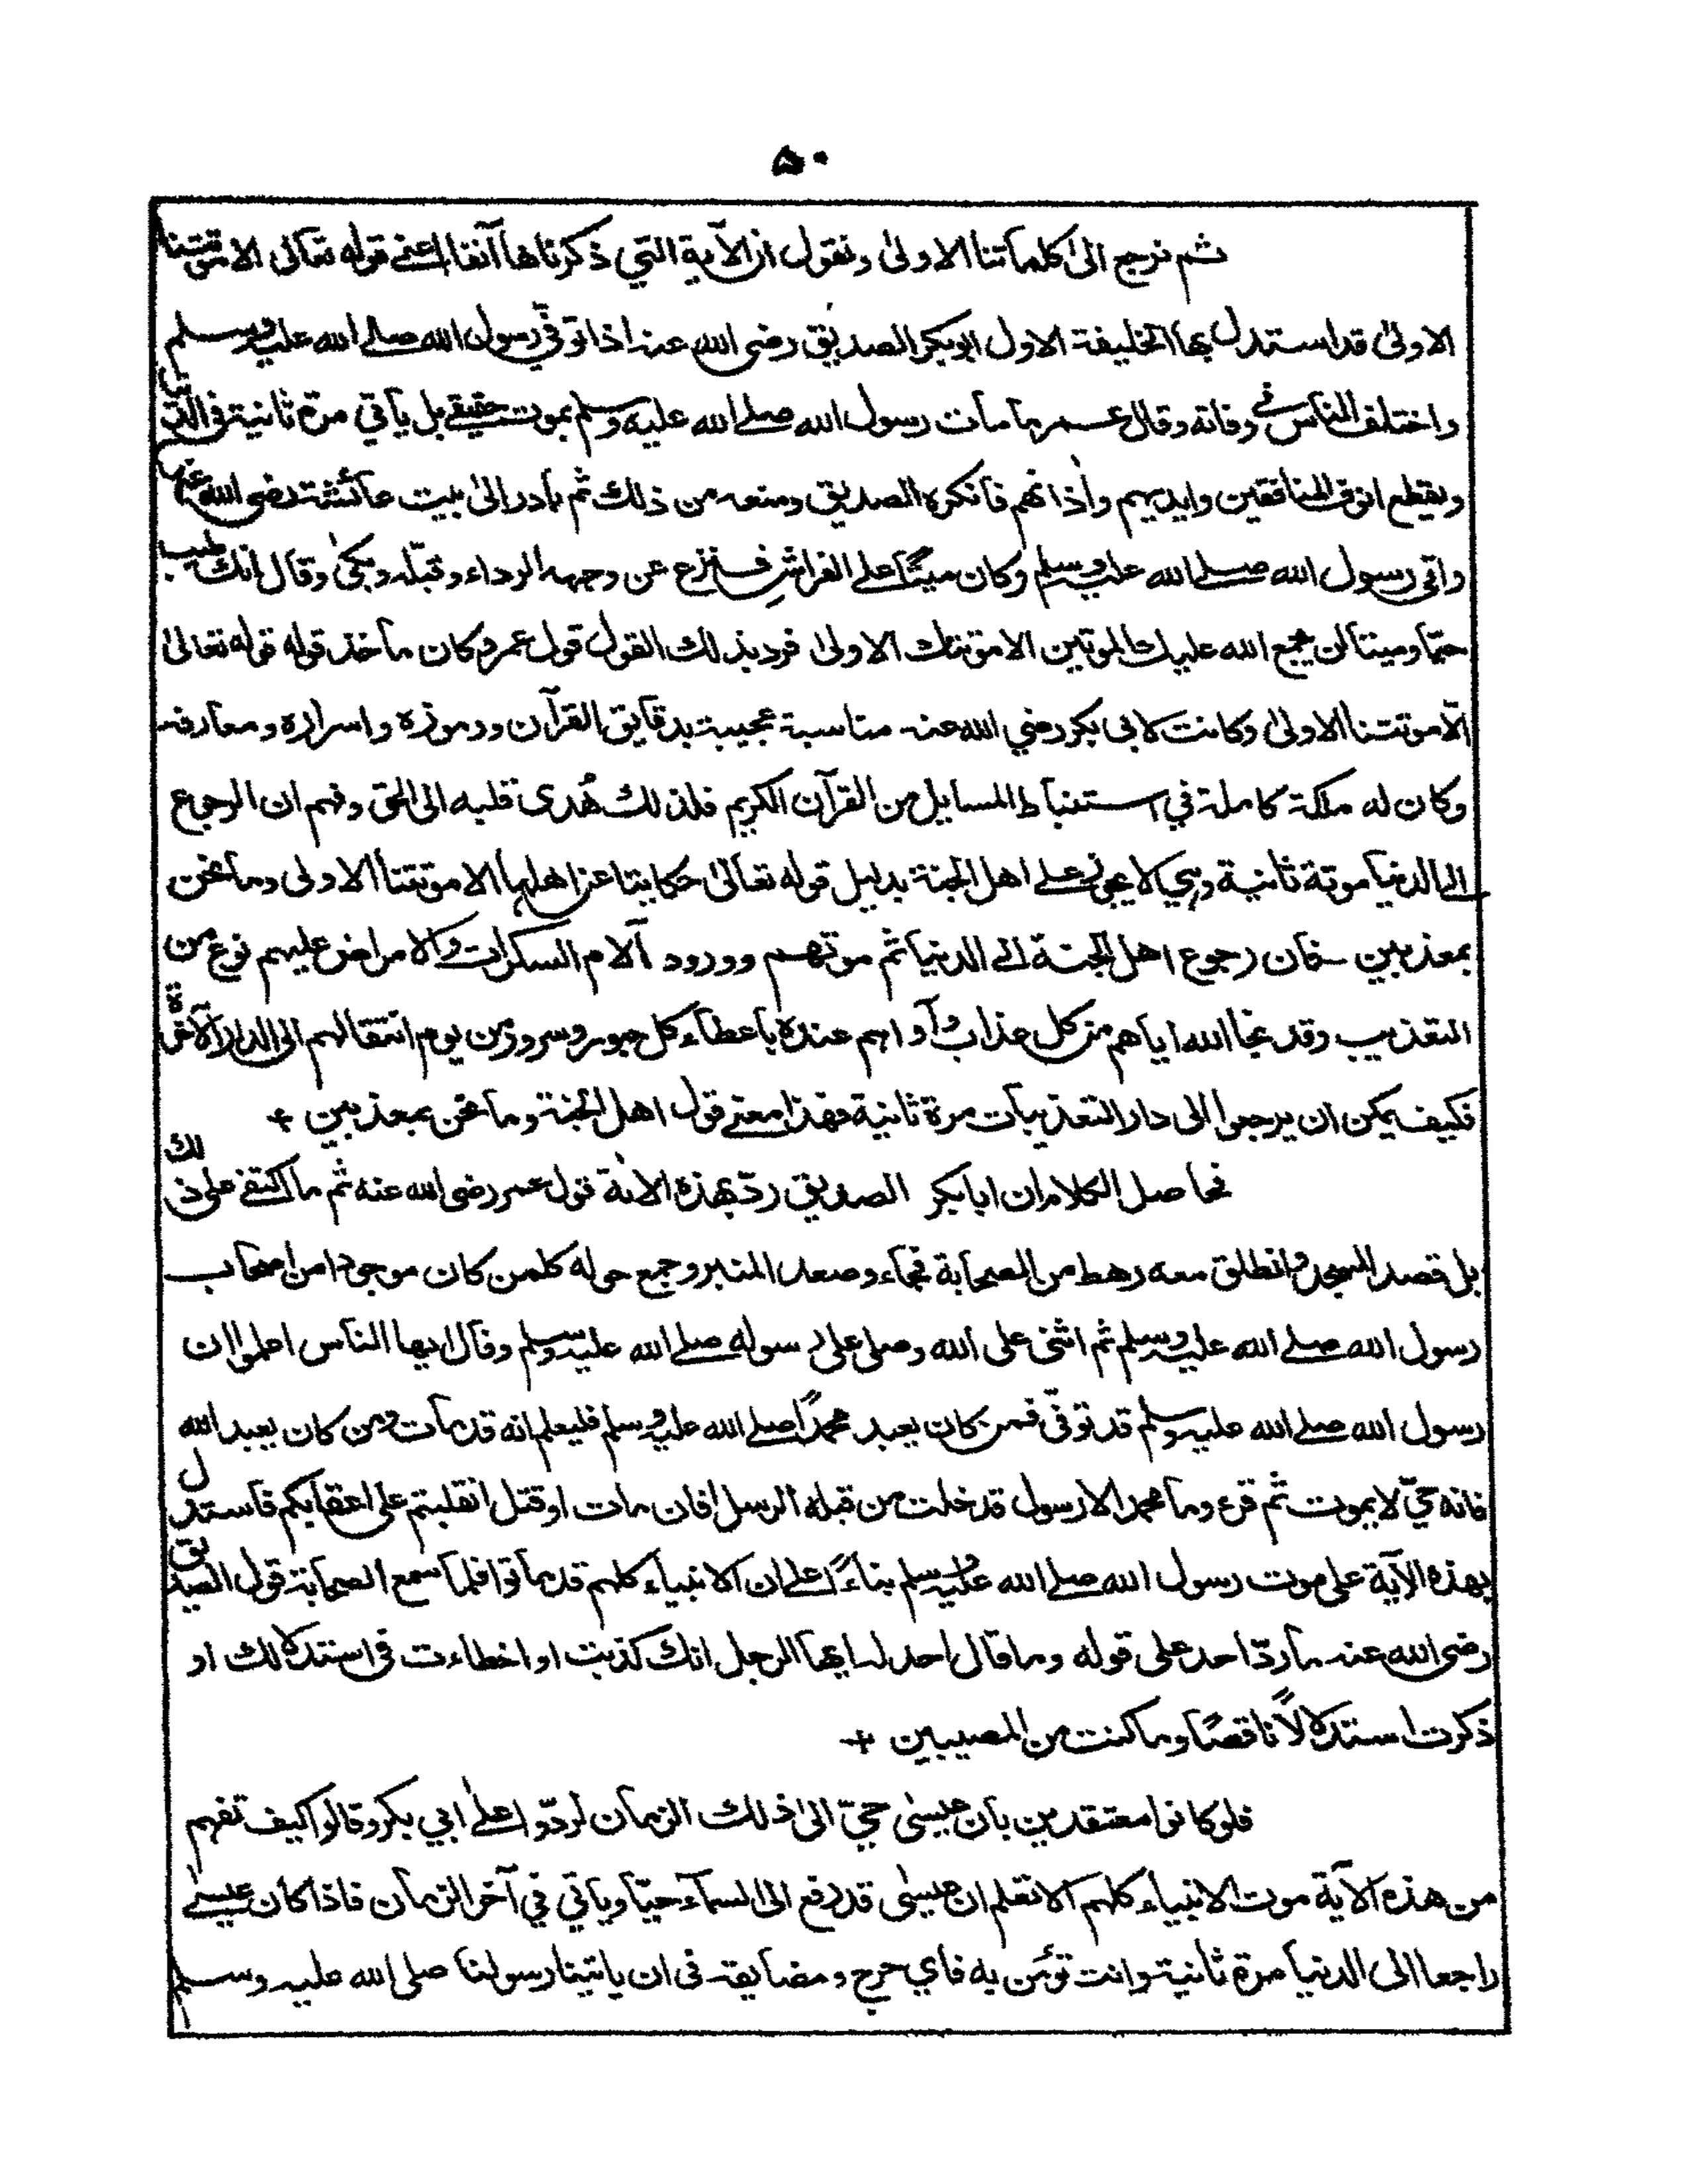 ۵۰
ثم نرجع الىٰ كلماتنا الاولىٰ ونقول ان الآية التي ذكرناها آنفا اعنے قوله تعالى الا موتتنا
الاولىٰ قد استدل بها الخليفة الاول ابوبكر الصديق رضى الله عنه اذا توفّى رسول الله صلے الله عليه وسلم
واختلف الناس فى وفاته وقال عمر ما مات رسول الله صلے الله عليه وسلم بموت حقيقے بل يأتي مرة ثانية فى الدنيا
ويقطع انوف المنافقين وايديهم واٰذانهم فانكره الصديق ومنعه من ذلك ثم بادر الىٰ بيت عائشة رضى الله عنها
واتى رسول الله صلے الله عليه وسلم وكان ميتًا على الفراش فنزع عن وجهه الرداء وقبّله وبكىٰ وقال انك طيب
حيّا وميتا لن يجمع الله عليك الموتين الا موتتك الاولىٰ فرد بذلك القول قول عمر وكان مأخذ قوله قوله تعالىٰ
الّا موتتنا الاولىٰ وكانت لابى بكر رضي الله عنه مناسبة عجيبة بدقايق القرآن ورموزه واسراره ومعارفه
وكان له ملكة كاملة في استنباط المسايل من القرآن الكريم فلذلك هُدى قلبه الى الحق وفهم ان الرجوع
الى الدنيا موتة ثانية وهي لا يجوز على اهل الجنة بدليل قوله تعالىٰ حكايتا عن اهلها الا موتتنا الاولى وما نحن
بمعذبين - فان رجوع اهل الجنة الى الدنيا ثم موتهم وورود آلام السكرات والامراض عليهم نوع من
التعذيب وقد نجا الله اياهم من كل عذاب وآواهم عنده باعطاء كل حبور وسرور من يوم انتقالهم الى الدار الآخرة
فكيف يمكن ان يرجعوا الى دار التعذيبات مرة ثانية فهذا معنے قول اهل الجنة وما نحن بمعذبين +
فحاصل الكلام ان ابابكر الصديق ردّ بهذه الاٰية قول عمر رضى الله عنه ثم ما اكتفى على ذلك
بل قصد المسجد وانطلق معه رهط من الصحابة فجاء وصعد المنبر وجمع حوله كلمن كان موجودا من اصحاب
رسول الله صلے الله عليه وسلم ثم اثنى على الله وصلى على رسوله صلے الله عليه وسلم وقال ايها الناس اعلموا ان
رسول الله صلے الله عليه وسلم قد توفّى فمن كان يعبد محمدًا صلے الله عليه وسلم فليعلم انه قد مات ومن كان يعبد الله
فانه حيّ لا يموت ثم قرء وما محمد الا رسول قد خلت من قبله الرسل افان مات او قتل انقلبتم على اعقابكم فاستدل
بهذه الآية على موت رسول الله صلے الله عليه وسلم بناءً على ان الانبياء كلهم قد ماتوا فلما سمع الصحابة قول الصديق
رضى الله عنه ما ردّ احد على قوله وما قال احد له ايها الرجل انك كذبت او اخطاءت فى استدلالك او
ذكرت استدلالًا ناقصًا وما كنت من المصيبين +
فلو كانوا معتقدين بان عيسىٰ حيّ الىٰ ذلك الزمان لردّوا علىٰ ابي بكر وقالوا كيف تفهم
من هذه الآية موت الانبياء كلهم الا تعلم ان عيسىٰ قد رفع الى السماء حيّا وياتي في آخر الزمان فاذا كان عيسىٰ
راجعا الى الدنيا مرة ثانية وانت تؤمن به فاي حرج ومضايقة فى ان ياتينا رسولنا صلى الله عليه وسلم